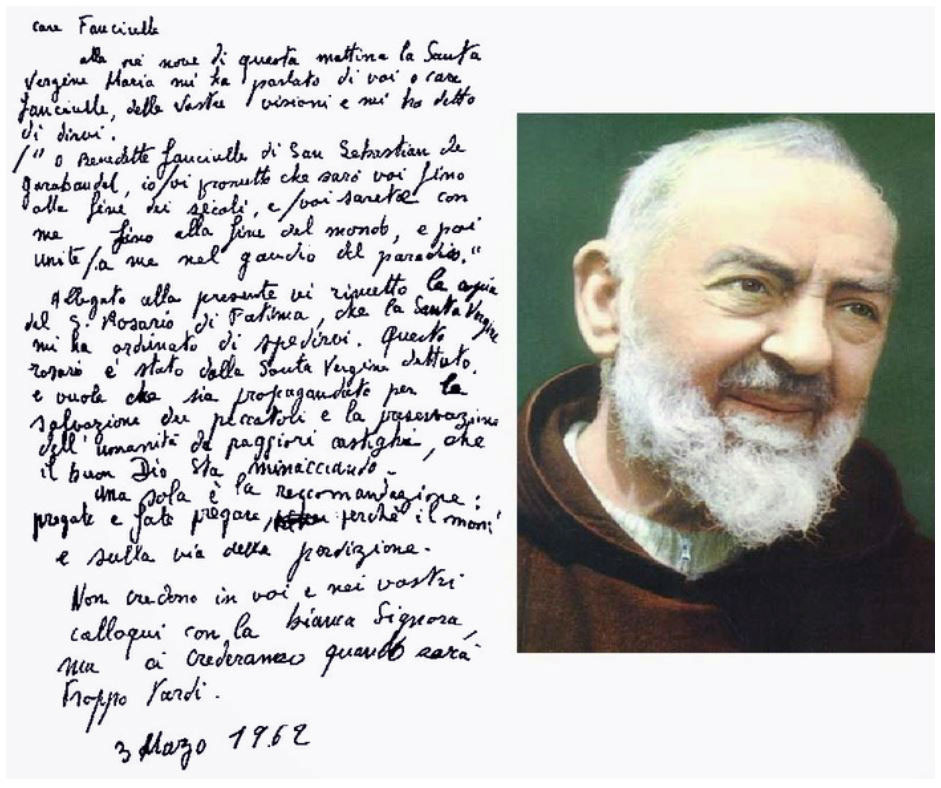 care Fanciulle
alle ore nove di questa mattina la Santa
Vergine Maria mi ha parlato di voi o care
fanciulle, delle vostre visioni e mi ha detto
di dirvi.
/" o Benedette fanciulle di San Sebastian de
garabandal, io/vi prometto che sarò voi fino
alla fine dei secoli, e/voi sarete con
me fino alla fine del mondo, e poi
unite/a me nel gaudio del paradiso."
Allegato alla presente vi rimetto la copia
del S. Rosario di Fatima, che la Santa Vergine
mi ha ordinato di spedirvi. Questo
rosario è stato dalla Santa Vergine dettato,
e vuole che sia propagandato per la
salvazione dei peccatoli e la preservazione
dell'umanità da paggiori castighi, che
il buon Dio sta minacciando-
una sola è la raccomandazione:
pregate e fate pregare, perchè il
e sulla via della perdizione.
Non credono in voi e nei vostri
calloqui con la bianca Signora,
ma ci crederanno quando sarà
troppo tardi.
3 Marzo 1962